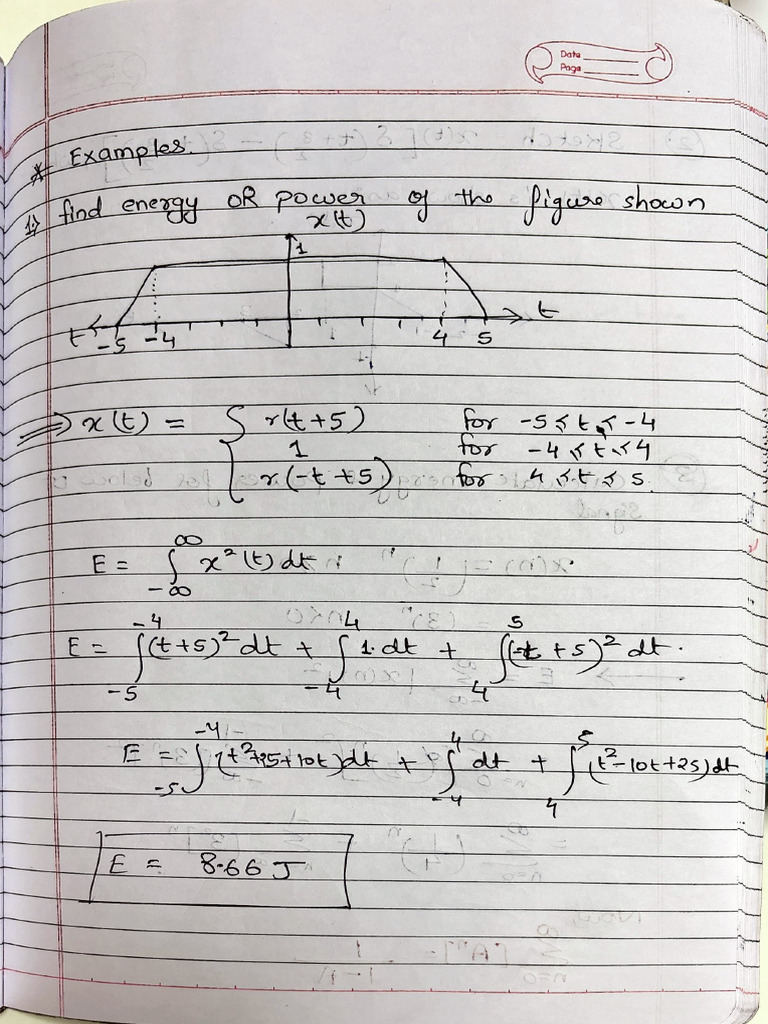 Date
Page
* Examples.
1) find energy OR power of the figure shown
x(t)
1
t -5 -4 4 5 t
⇒ x(t) = { r(t+5) for -5 ≤ t ≤ -4
1 for -4 ≤ t ≤ 4
r(-t+5) for 4 ≤ t ≤ 5.
E = ∫_{-∞}^{∞} x²(t) dt
E = ∫_{-5}^{-4} (t+5)² dt + ∫_{-4}^{4} 1. dt + ∫_{4}^{5} (-t+5)² dt.
E = ∫_{-5}^{-4} (t²+25+10t) dt + ∫_{-4}^{4} dt + ∫_{4}^{5} (t²-10t+25) dt
E = 8.66 J